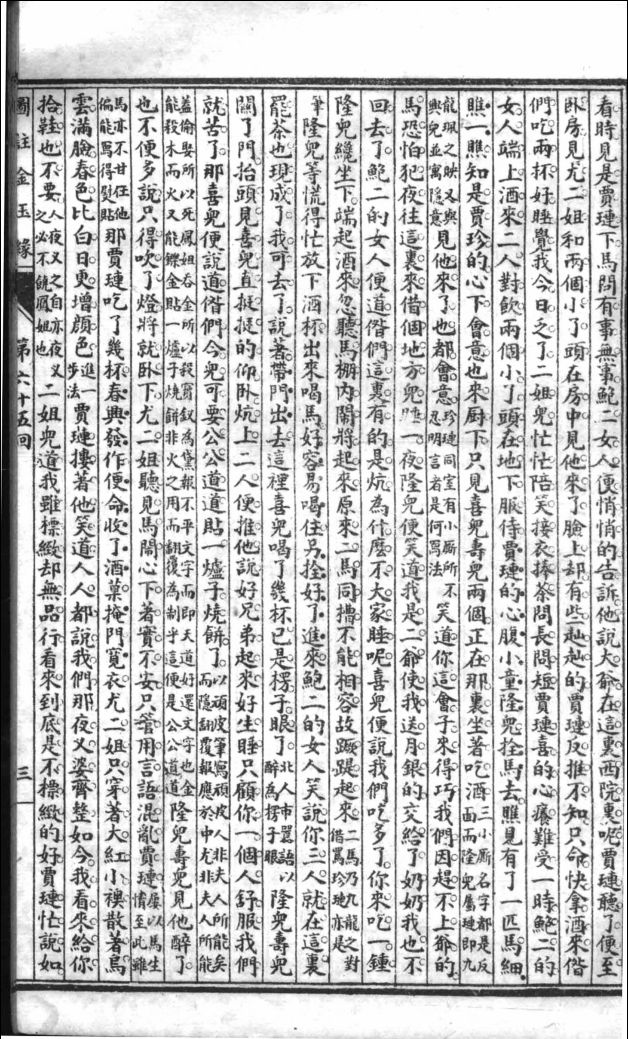 看時見是賈璉下馬問有事無事鮑二女人便悄悄的告訴他說大爺在這裏西院裏呢賈璉聽了便至
臥房見尤二姐和兩個小丫頭在房中見他來了臉上却有些赸赸的賈璉反推不知只命快拿酒來偺
們吃兩杯好睡覺我今日乏了二姐兒忙忙陪笑接衣捧茶問長問短賈璉喜的心癢難受一時鮑二的
女人端上酒來二人對飲兩個小丫頭在地下服侍賈璉的心腹小童隆兒拴馬去瞧見有了一匹馬細
瞧一瞧知是賈珍的心下會意也來厨下只見喜兒壽兒兩個正在那裏坐着吃酒三小厮名字都是反面而隆兒屬璉即九
龍珮之映又與興兒並寓隱意見他來了也都會意珍璉同室有小厮所不忍明言者是何寫法笑道你這會子來得巧我們因趕不上爺的
馬恐怕犯夜往這裏來借個地方兒睡一夜隆兒便笑道我是二爺使我送月銀的交給了奶奶我也不
回去了鮑二的女人便道偺們這裏有的是炕為什麼不大家睡呢喜兒便說我們吃多了你來吃一鍾
隆兒纔坐下端起酒來忽聽馬棚內鬧將起來原來二馬同槽不能相容故蹶踶起來二馬乃九龍之對借罵珍璉亦是
筆隆兒等慌得忙放下酒杯出來喝馬好容易喝住另拴好了進來鮑二的女人笑說你三人就在這裏
罷茶也現成了我可去了說著帶門出去這裡喜兒喝了幾杯已是楞子眼了北人市罵語以醉為楞子眼隆兒壽兒
關了門抬頭見喜兒直挺挺的仰臥炕上二人便推他說好兄弟起來好生睡只顧你一個人舒服我們
就苦了那喜兒便說道偺們今兒可要公公道道貼一爐子燒餅了以頑皮筆寫頑皮人非夫人所能矣而隱翻覆報應於中尤非夫人所能
蓋偷娶所以死鳳姐吞金所以殺寶釵為黛報不平文字而即天道好還文字也金能殺木而火又能鑠金貼一爐子燒餅非火之用而翻覆為制乎這便是公公道道隆兒壽兒見他醉了
也不便多說只得吹了燈將就臥下尤二姐聽見馬鬧心下著實不安只管用言語混亂賈璉以馬生情至此雖
馬亦不甘任他偏能罵得熨貼那賈璉吃了幾杯春興發作便命收了酒菓掩門寬衣尤二姐只穿著大紅小襖散著烏
雲滿臉春色比白日更增顏色進一步法賈璉摟著他笑道人人都說我們那夜叉婆齊整如今我看來給你
拾鞋也不要人夜叉之自亦夜叉之必不饒鳳姐也二姐兒道我雖標緻却無品行看來到底是不標緻的好賈璉忙說如
圖註金玉緣
第六十五回
三